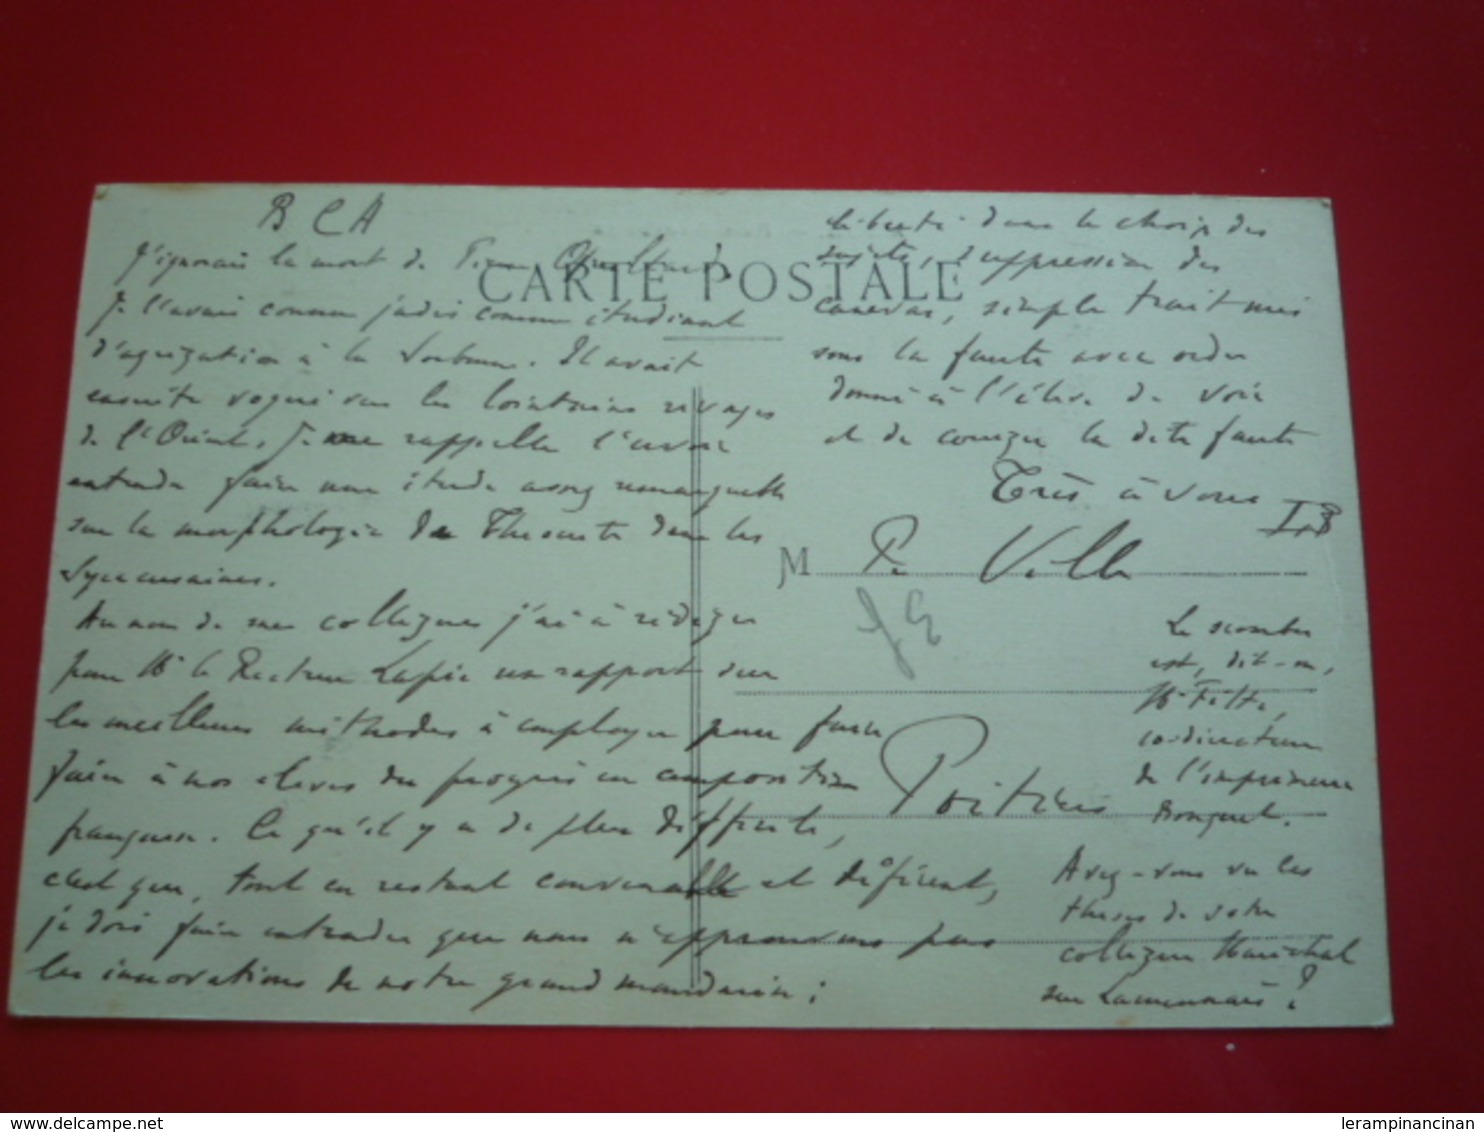 B C A
CARTE POSTALE
J'ignorais la mort de Pierre
Je l'avais connu jadis comme étudiant
d'agrégation à la Sorbonne. Il avait
ensuite vogué vers les lointains rivages
de l'Orient. Je me rappelle l'avoir
entendu faire une étude assez remarquable
sur la morphologie de Théocrite dans les
Syracusaines.
Au nom de mes collègues j'ai à rédiger
pour Mr le Recteur Lapie un rapport sur
les meilleures méthodes à employer pour faire
faire à nos élèves des progrès en composition
française. Ce qu'il y a de plus difficile,
c'est que, tout en restant convenable et déférent,
je dois faire entendre que nous n'approuvons pas
les innovations de notre grand mandarin :
liberté dans le choix des
sujets, suppression des
canevas, simple trait mis
sous la faute avec ordre
donné à l'élève de voir
et de corriger la dite faute
Très à vous
M De Ville
Poitiers
Le
est, dit-on,
Mr
de l'imprimerie
Avez-vous vu les
thèses de votre
collègue Maréchal
sur Lamennais ?
delcampe.net
lerampinancinan